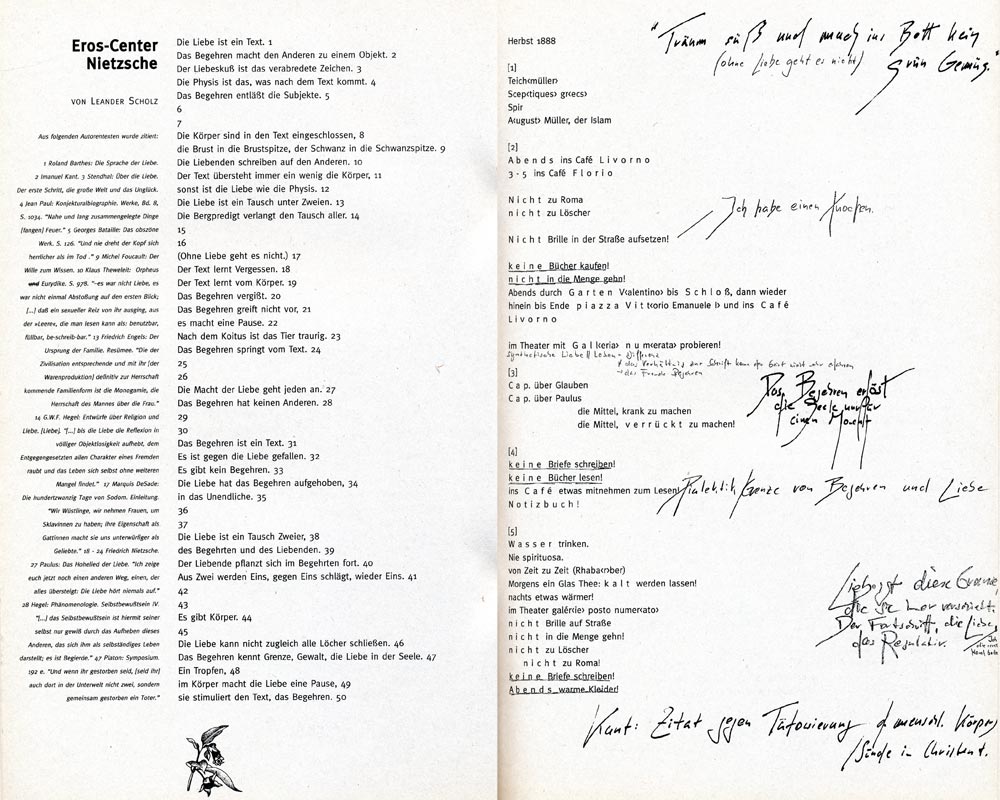 Eros-Center
Nietzsche
VON LEANDER SCHOLZ
Aus folgenden Autorentexten wurde zitiert:
1 Roland Barthes: Die Sprache der Liebe.
2 Imanuel Kant. 3 Stendhal: Über die Liebe.
Der erste Schritt, die große Welt und das Unglück.
4 Jean Paul: Konjekturalbiographie. Werke, Bd. 8,
S. 1034. "Nahe und lang zusammengelegte Dinge
[fangen] Feuer." 5 Georges Bataille: Das obszöne
Werk. S. 126. "Und nie dreht der Kopf sich
herrlicher als im Tod ." 9 Michel Foucault: Der
Wille zum Wissen. 10 Klaus Theweleit: Orpheus
und Eurydike. S. 978. "-es war nicht Liebe, es
war nicht einmal Abstoßung auf den ersten Blick;
[...] daß ein sexueller Reiz von ihr ausging, aus
der »Leere«, die man lesen kann als: benutzbar,
füllbar, be-schreib-bar." 13 Friedrich Engels: Der
Ursprung der Familie. Resümee. "Die der
Zivilisation entsprechende und mit ihr [der
Warenproduktion] definitiv zur Herrschaft
kommende Familienform ist die Monogamie, die
Herrschaft des Mannes über die Frau."
14 G.W.F. Hegel: Entwürfe über Religion und
Liebe. [Liebe]. "[...] bis die Liebe die Reflexion in
völliger Objektlosigkeit aufhebt, dem
Entgegengesetzten allen Charakter eines Fremden
raubt und das Leben sich selbst ohne weiteren
Mangel findet." 17 Marquis DeSade:
Die hundertzwanzig Tage von Sodom. Einleitung.
"Wir Wüstlinge, wir nehmen Frauen, um
Sklavinnen zu haben; ihre Eigenschaft als
Gattinnen macht sie uns unterwürfiger als
Geliebte." 18 - 24 Friedrich Nietzsche.
27 Paulus: Das Hohelied der Liebe. "Ich zeige
euch jetzt noch einen anderen Weg, einen, der
alles übersteigt: Die Liebe hört niemals auf."
28 Hegel: Phänomenologie. Selbstbewußtsein IV.
"[...] das Selbstbewußtsein ist hiermit seiner
selbst nur gewiß durch das Aufheben dieses
Anderen, das sich ihm als selbständiges Leben
darstellt; es ist Begierde." 47 Platon: Symposium.
192 e. "Und wenn ihr gestorben seid, [seid ihr]
auch dort in der Unterwelt nicht zwei, sondern
gemeinsam gestorben ein Toter."
Die Liebe ist ein Text. 1
Das Begehren macht den Anderen zu einem Objekt. 2
Der Liebeskuß ist das verabredete Zeichen. 3
Die Physis ist das, was nach dem Text kommt. 4
Das Begehren entläßt die Subjekte. 5
6
7
Die Körper sind in den Text eingeschlossen, 8
die Brust in die Brustspitze, der Schwanz in die Schwanzspitze. 9
Die Liebenden schreiben auf den Anderen. 10
Der Text übersteht immer ein wenig die Körper, 11
sonst ist die Liebe wie die Physis. 12
Die Liebe ist ein Tausch unter Zweien. 13
Die Bergpredigt verlangt den Tausch aller. 14
15
16
(Ohne Liebe geht es nicht.) 17
Der Text lernt Vergessen. 18
Der Text lernt vom Körper. 19
Das Begehren vergißt. 20
Das Begehren greift nicht vor, 21
es macht eine Pause. 22
Nach dem Koitus ist das Tier traurig. 23
Das Begehren springt vom Text. 24
25
26
Die Macht der Liebe geht jeden an. 27
Das Begehren hat keinen Anderen. 28
29
30
Das Begehren ist ein Text. 31
Es ist gegen die Liebe gefallen. 32
Es gibt kein Begehren. 33
Die Liebe hat das Begehren aufgehoben, 34
in das Unendliche. 35
36
37
Die Liebe ist ein Tausch Zweier, 38
des Begehrten und des Liebenden. 39
Der Liebende pflanzt sich im Begehrten fort. 40
Aus Zwei werden Eins, gegen Eins schlägt, wieder Eins. 41
42
43
Es gibt Körper. 44
45
Die Liebe kann nicht zugleich alle Löcher schließen. 46
Das Begehren kennt Grenze, Gewalt, die Liebe in der Seele. 47
Ein Tropfen, 48
im Körper macht die Liebe eine Pause, 49
sie stimuliert den Text, das Begehren. 50
"Träum süß und mach ins Bett kein
(ohne Liebe geht es nicht) grün Gemüs."
Herbst 1888
[1]
Teich‹müller›
Scep‹tiques› gr‹ecs›
Spir
A‹ugust› Müller, der Islam
[2]
Abends ins Café Livorno
3 - 5 ins Café Florio
Nicht zu Roma
nicht zu Löscher
Ich habe einen Knochen.
Nicht Brille in der Straße aufsetzen!
keine Bücher kaufen!
nicht in die Menge gehn!
Abends durch Garten V‹alentino› bis Schloß, dann wieder
hinein bis Ende piazza Vitt‹orio Emanuele I› und ins Café
Livorno
im Theater mit Gal‹leria› numerata› probieren!
[3]
Cap. über Glauben
Cap. über Paulus
die Mittel, krank zu machen
die Mittel, verrückt zu machen!
Das Begehren erlöst
die Seele nur für
einen Moment
[4]
keine Briefe schreiben!
keine Bücher lesen!
ins Café etwas mitnehmen zum Lesen!
Notizbuch!
Dialektik/Grenze von Begehren und Liebe
[5]
Wasser trinken.
Nie spirituosa.
von Zeit zu Zeit (Rhaba‹r›ber)
Morgens ein Glas Thee: kalt werden lassen!
nachts etwas wärmer!
im Theater gal‹érie› posto numer‹ato›
nicht Brille auf Straße
nicht in die Menge gehn!
nicht zu Löscher
nicht zu Roma!
keine Briefe schreiben!
Abends warme Kleider!
Der Fortschritt, die Liebe,
das Regulativ.
Kant: Zitat gegen Tätowierung d. menschl. Körpers
/Sünde in Christent.